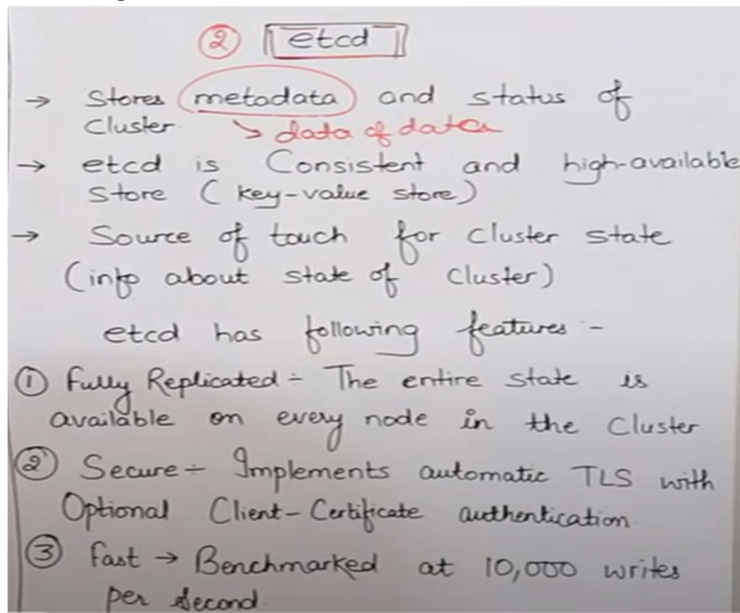 ② etcd
→ Stores metadata and status of
Cluster. ↘ data of data
→ etcd is Consistent and high-available
Store (key-value store)
→ Source of touch for cluster state
(info about state of Cluster)
etcd has following features :-
① Fully Replicated ÷ The entire state is
available on every node in the Cluster.
② Secure ÷ Implements automatic TLS with
Optional Client-Certificate authentication.
③ Fast → Benchmarked at 10,000 writes
per second.